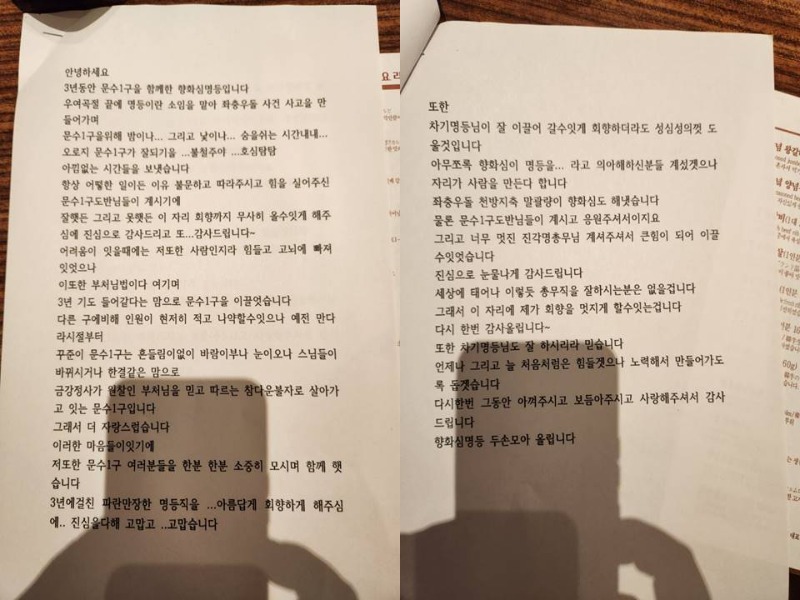 안녕하세요
3년동안 문수1구을 함께한 향화심명등입니다
우여곡절 끝에 명등이란 소임을 말아 좌충우돌 사건 사고을 만
들어가며
문수1구을위해 밤이나... 그리고 낮이나... 숨을쉬는 시간내내...
오로지 문수1구가 잘되기을 ...불철주야 ...호심탐탐
아낌없는 시간들을 보냇습니다
항상 어떻한 일이든 이유 불문하고 따라주시고 힘을 실어주신
문수1구도반님들이 계시기에
잘햇든 그리고 못햇든 이 자리 회향까지 무사히 올수잇게 해주
심에 진심으로 감사드리고 또...감사드립니다~
어려움이 잇을때에는 저또한 사람인지라 힘들고 고뇌에 빠져
잇엇으나
이또한 부처님법이다 여기며
3년 기도 들어갇다는 맘으로 문수1구을 이끌엇습니다
다른 구에비해 인원이 현저히 적고 나약할수잇으나 예전 만다
라시절부터
꾸준이 문수1구는 흔들림이없이 바람이부나 눈이오나 스님들이
바뀌시거나 한결같은 맘으로
금강정사가 원찰인 부처님을 믿고 따르는 참다운불자로 살아가
고 잇는 문수1구입니다
그래서 더 자랑스럽습니다
이러한 마음들이잇기에
저또한 문수1구 여러분들을 한분 한분 소중히 모시며 함께 햇
습니다
3년에걸친 파란만장한 명등직을 ...아름답게 회향하게 해주심
에.. 진심을다해 고맙고 ..고맙습니다
또한
차기명등님이 잘 이끌어 갈수잇게 회향하더라도 성심성의껏 도
울것입니다
아무쪼록 향화심이 명등을... 라고 의아해하신분들 계섰겟으나
자리가 사람을 만든다 합니다
좌충우돌 천방지축 말괄량이 향화심도 해냇습니다
물론 문수1구도반님들이 계시고 응원주셔서이지요
그리고 너무 멋진 진각명총무님 계셔주셔서 큰힘이 되어 이끌
수잇엇습니다
진심으로 눈물나게 감사드립니다
세상에 태어나 이렇듯 총무직을 잘하시는분은 없을겁니다
그래서 이 자리에 제가 회향을 멋지게 할수잇는겁니다
다시 한번 감사올립니다~
또한 차기명등님도 잘 하시리라 믿습니다
언제나 그리고 늘 처음처럼은 힘들겟으나 노력해서 만들어가도
록 돕겟습니다
다시한번 그동안 아껴주시고 보듬아주시고 사랑해주셔서 감사
드립니다
향화심명등 두손모아 올립니다